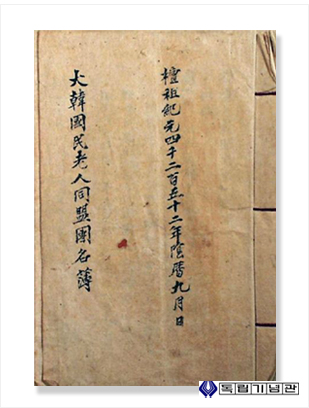 檀祖紀元四千二百五十二年陰曆九月日
大韓國民老人同盟團名簿
독립기념관